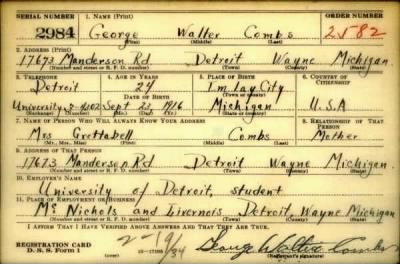 SERIAL NUMBER 1. NAME (Print) ORDER NUMBER
2984 George Walter Combs 2582
(First) (Middle) (Last)
2. ADDRESS (Print)
17673 Manderson Rd Detroit Wayne Michigan
(Number and street or R. F. D. number) (Town) (County) (State)
3. TELEPHONE 4. AGE IN YEARS 5. PLACE OF BIRTH 6. COUNTRY OF CITIZENSHIP
Detroit 24 Imlay City
DATE OF BIRTH (Town or county)
University Sept 23, 1916 Michigan U.S.A
(Exchange) (Number) (Mo.) (Day) (Yr.) (State or country)
7. NAME OF PERSON WHO WILL ALWAYS KNOW YOUR ADDRESS 8. RELATIONSHIP OF THAT PERSON
Mrs Combs Mother
(Mr., Mrs., Miss) (First) (Middle) (Last)
9. ADDRESS OF THAT PERSON
17673 Manderson Rd Detroit Wayne Michigan
(Number and street or R. F. D. number) (Town) (County) (State)
10. EMPLOYER'S NAME
University of Detroit, student
11. PLACE OF EMPLOYMENT OR BUSINESS
Mc Nichols and Livernois Detroit, Wayne Michigan
(Number and street or R. F. D. number) (Town) (County) (State)
I AFFIRM THAT I HAVE VERIFIED ABOVE ANSWERS AND THAT THEY ARE TRUE.
REGISTRATION CARD
D. S. S. Form 1 George Walter Combs
(Registrant's signature)